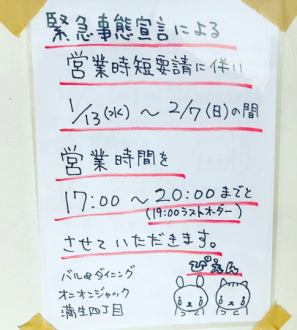 緊急事態宣言による
営業時短要請に伴い
1/13(水)〜2/7(日)の間
営業時間を
17:00〜20:00までと
(19:00ラストオーダー)
させていただきます。
ぴえん
バル&ダイニング
オニオンジャック
蒲生四丁目